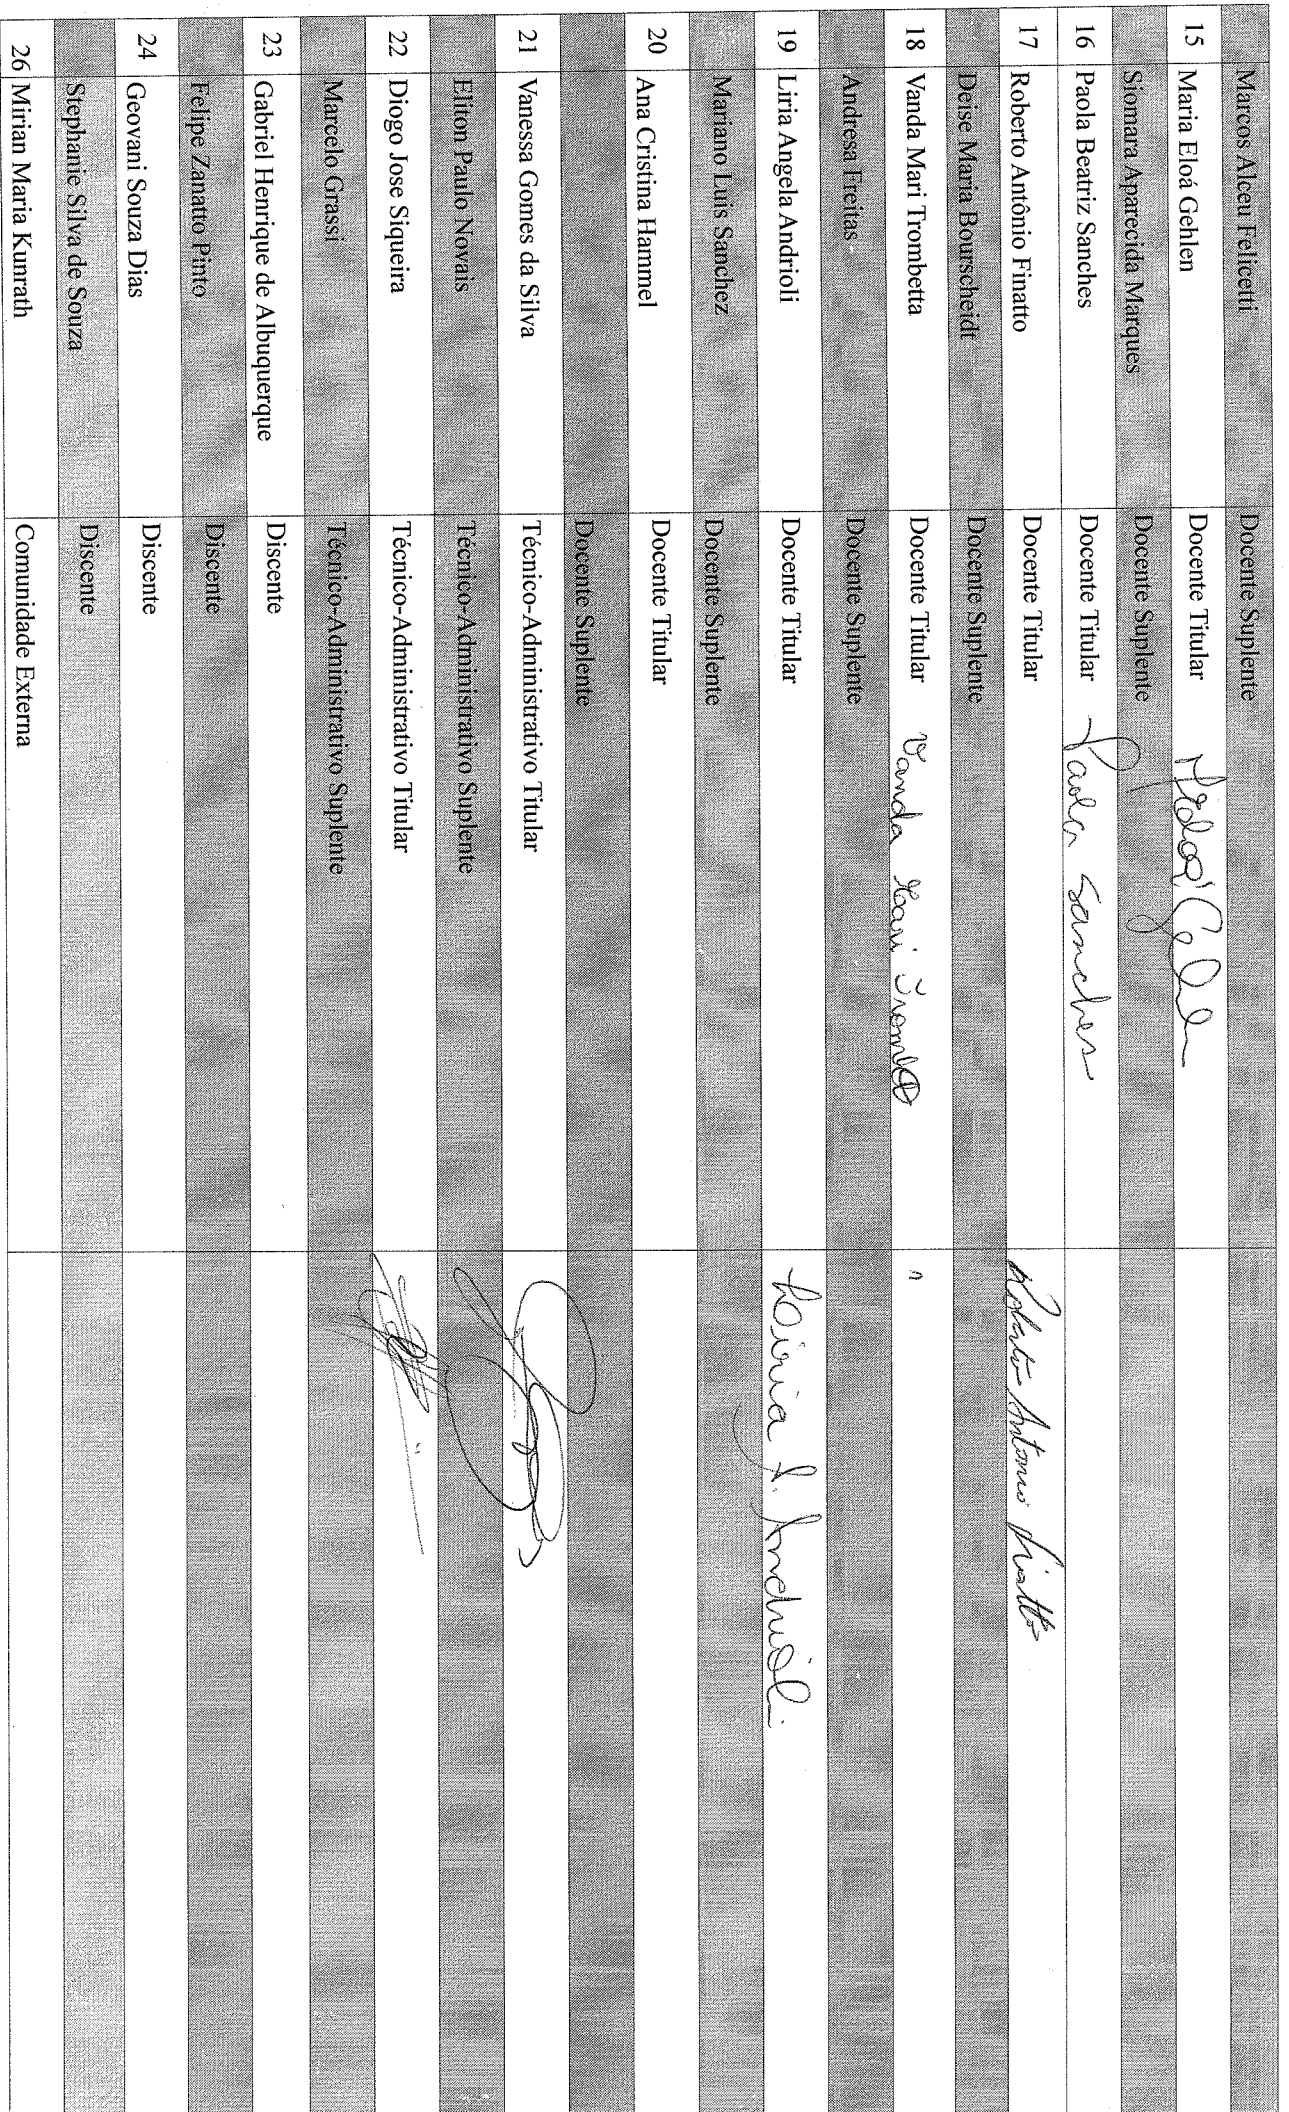 Marcos Alceu Felicetti Docente Suplente
15 Maria Eloá Gehlen Docente Titular
Siomara Aparecida Marques Docente Suplente
16 Paola Beatriz Sanches Docente Titular Paola Sanches
17 Roberto Antônio Finatto Docente Titular Roberto Antonio Finatto
Deise Maria Bourscheidt Docente Suplente
18 Vanda Mari Trombetta Docente Titular Vanda Mari
Andresa Freitas Docente Suplente
19 Liria Angela Andrioli Docente Titular Liria A. Andrioli
Mariano Luis Sanchez Docente Suplente
20 Ana Cristina Hammel Docente Titular
Docente Suplente
21 Vanessa Gomes da Silva Técnico-Administrativo Titular
Eliton Paulo Novais Técnico-Administrativo Suplente
22 Diogo Jose Siqueira Técnico-Administrativo Titular
Marcelo Grassi Técnico-Administrativo Suplente
23 Gabriel Henrique de Albuquerque Discente
Felipe Zanatto Pinto Discente
24 Geovani Souza Dias Discente
Stephanie Silva de Souza Discente
26 Mirian Maria Kunrath Comunidade Externa